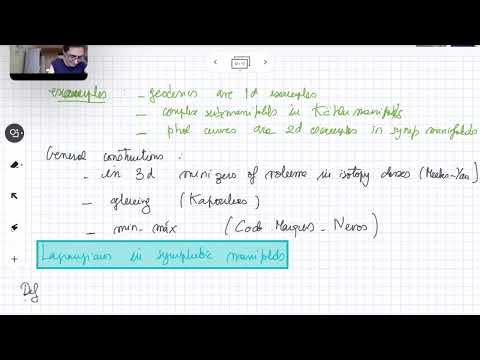 examples : _ geodesics are 1d examples
_ complex submanifolds in Kähler manifolds
_ phol curves are 2d examples in symp manifolds
General constructions :
_ in 3d minimizers of volume in isotopy classes (Meeks-Yau)
_ glueing (Kapouleas)
_ min-máx (Codá Marques - Neves)
Lagrangians in symplectic manifolds
Def